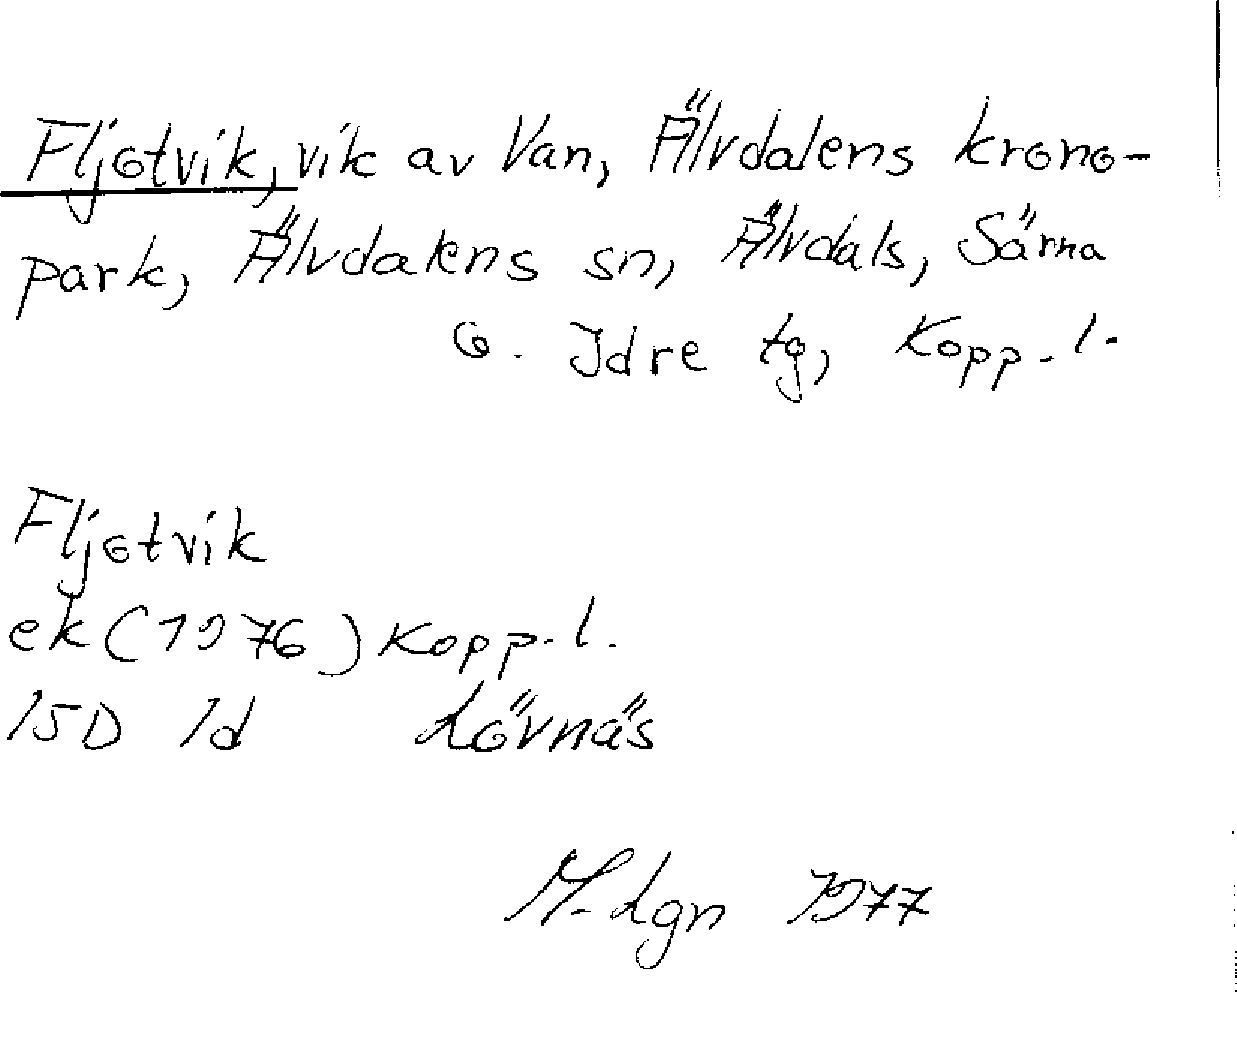 Fljotvik, vik av Van, Älvdalens krono-
park, Älvdalens sn, Älvdals, Särna
o. Idre tg, Kopp. l.
Fljotvik
ek (1976) Kopp. l.
15D 1d Lövnäs
M. Lgn 1977